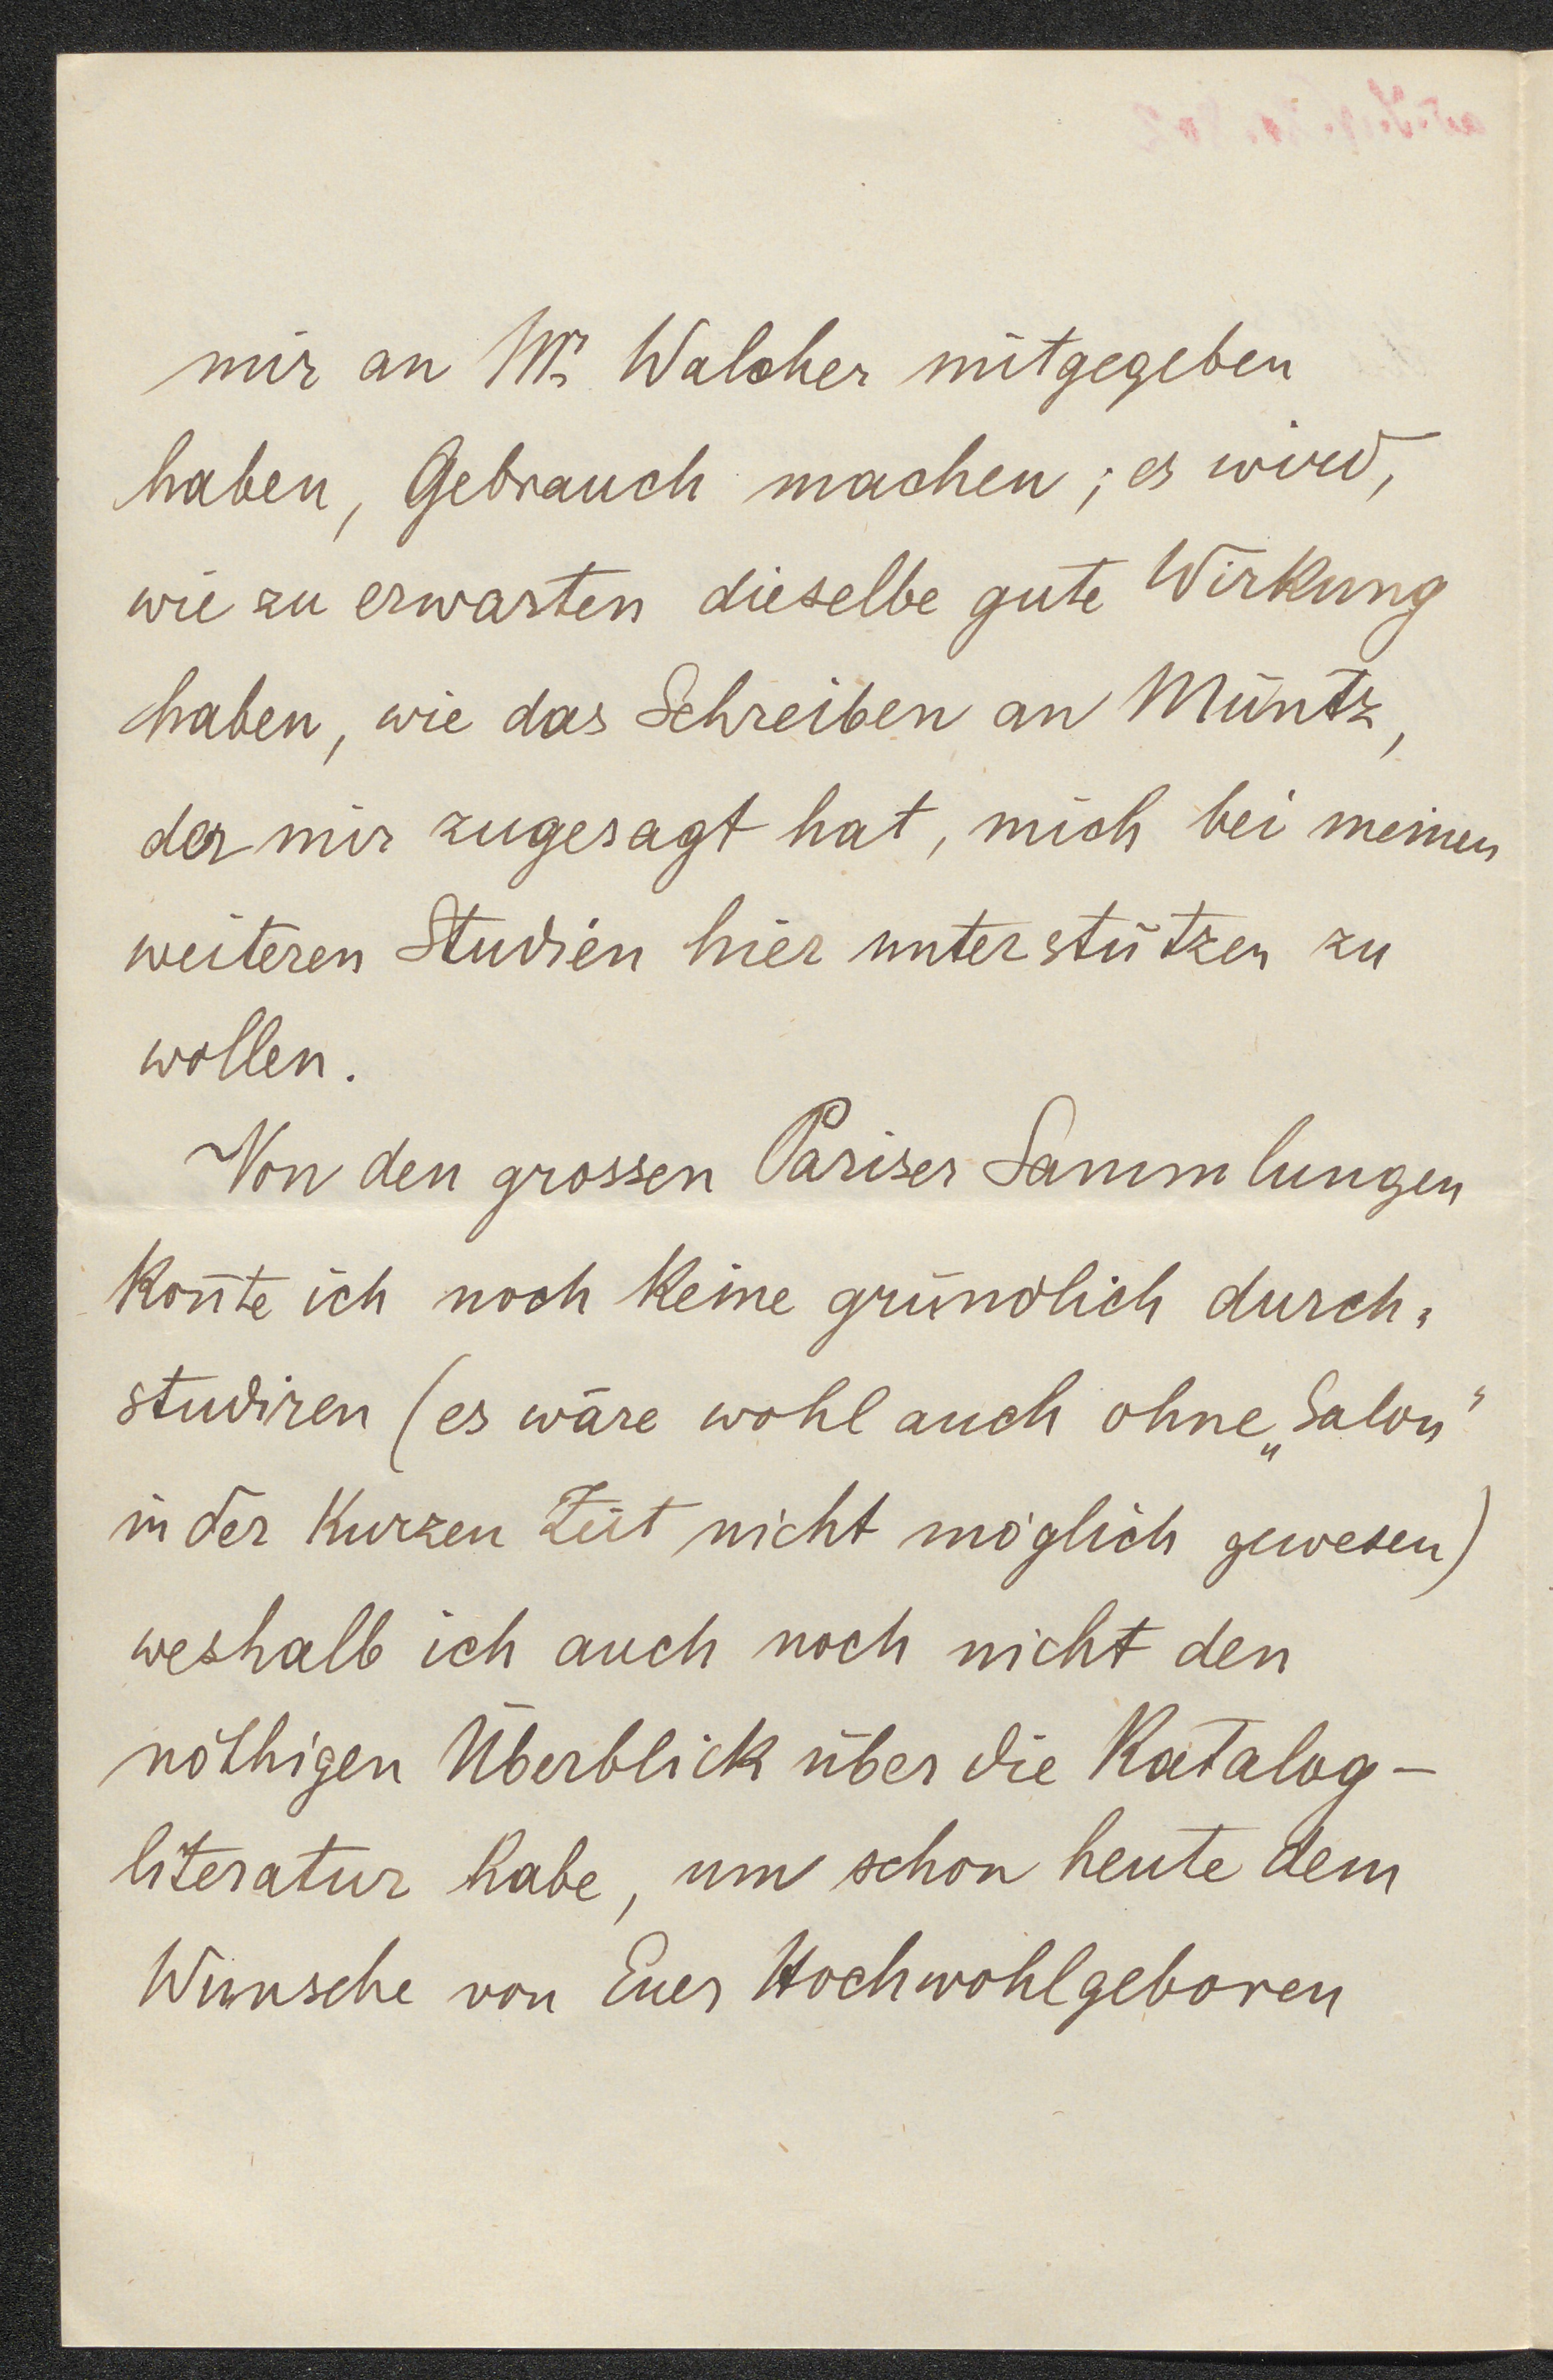 mir an Mr. Walcher mitgegeben
haben, Gebrauch machen; es wird,
wie zu erwarten dieselbe gute Wirkung
haben, wie das Schreiben an Müntz,
der mir zugesagt hat, mich bei meinen
weiteren Studien hier unterstützen zu
wollen.
Von den grossen Pariser Sammlungen
kon̄te ich noch keine gründlich durch-
studiren (es wäre wohl auch ohne „Salon“
in der kurzen Zeit nicht möglich gewesen)
weshalb ich auch noch nicht den
nöthigen Überblick über die Katalog-
literatur habe, um schon heute dem
Wunsche von Euer Hochwohlgeboren